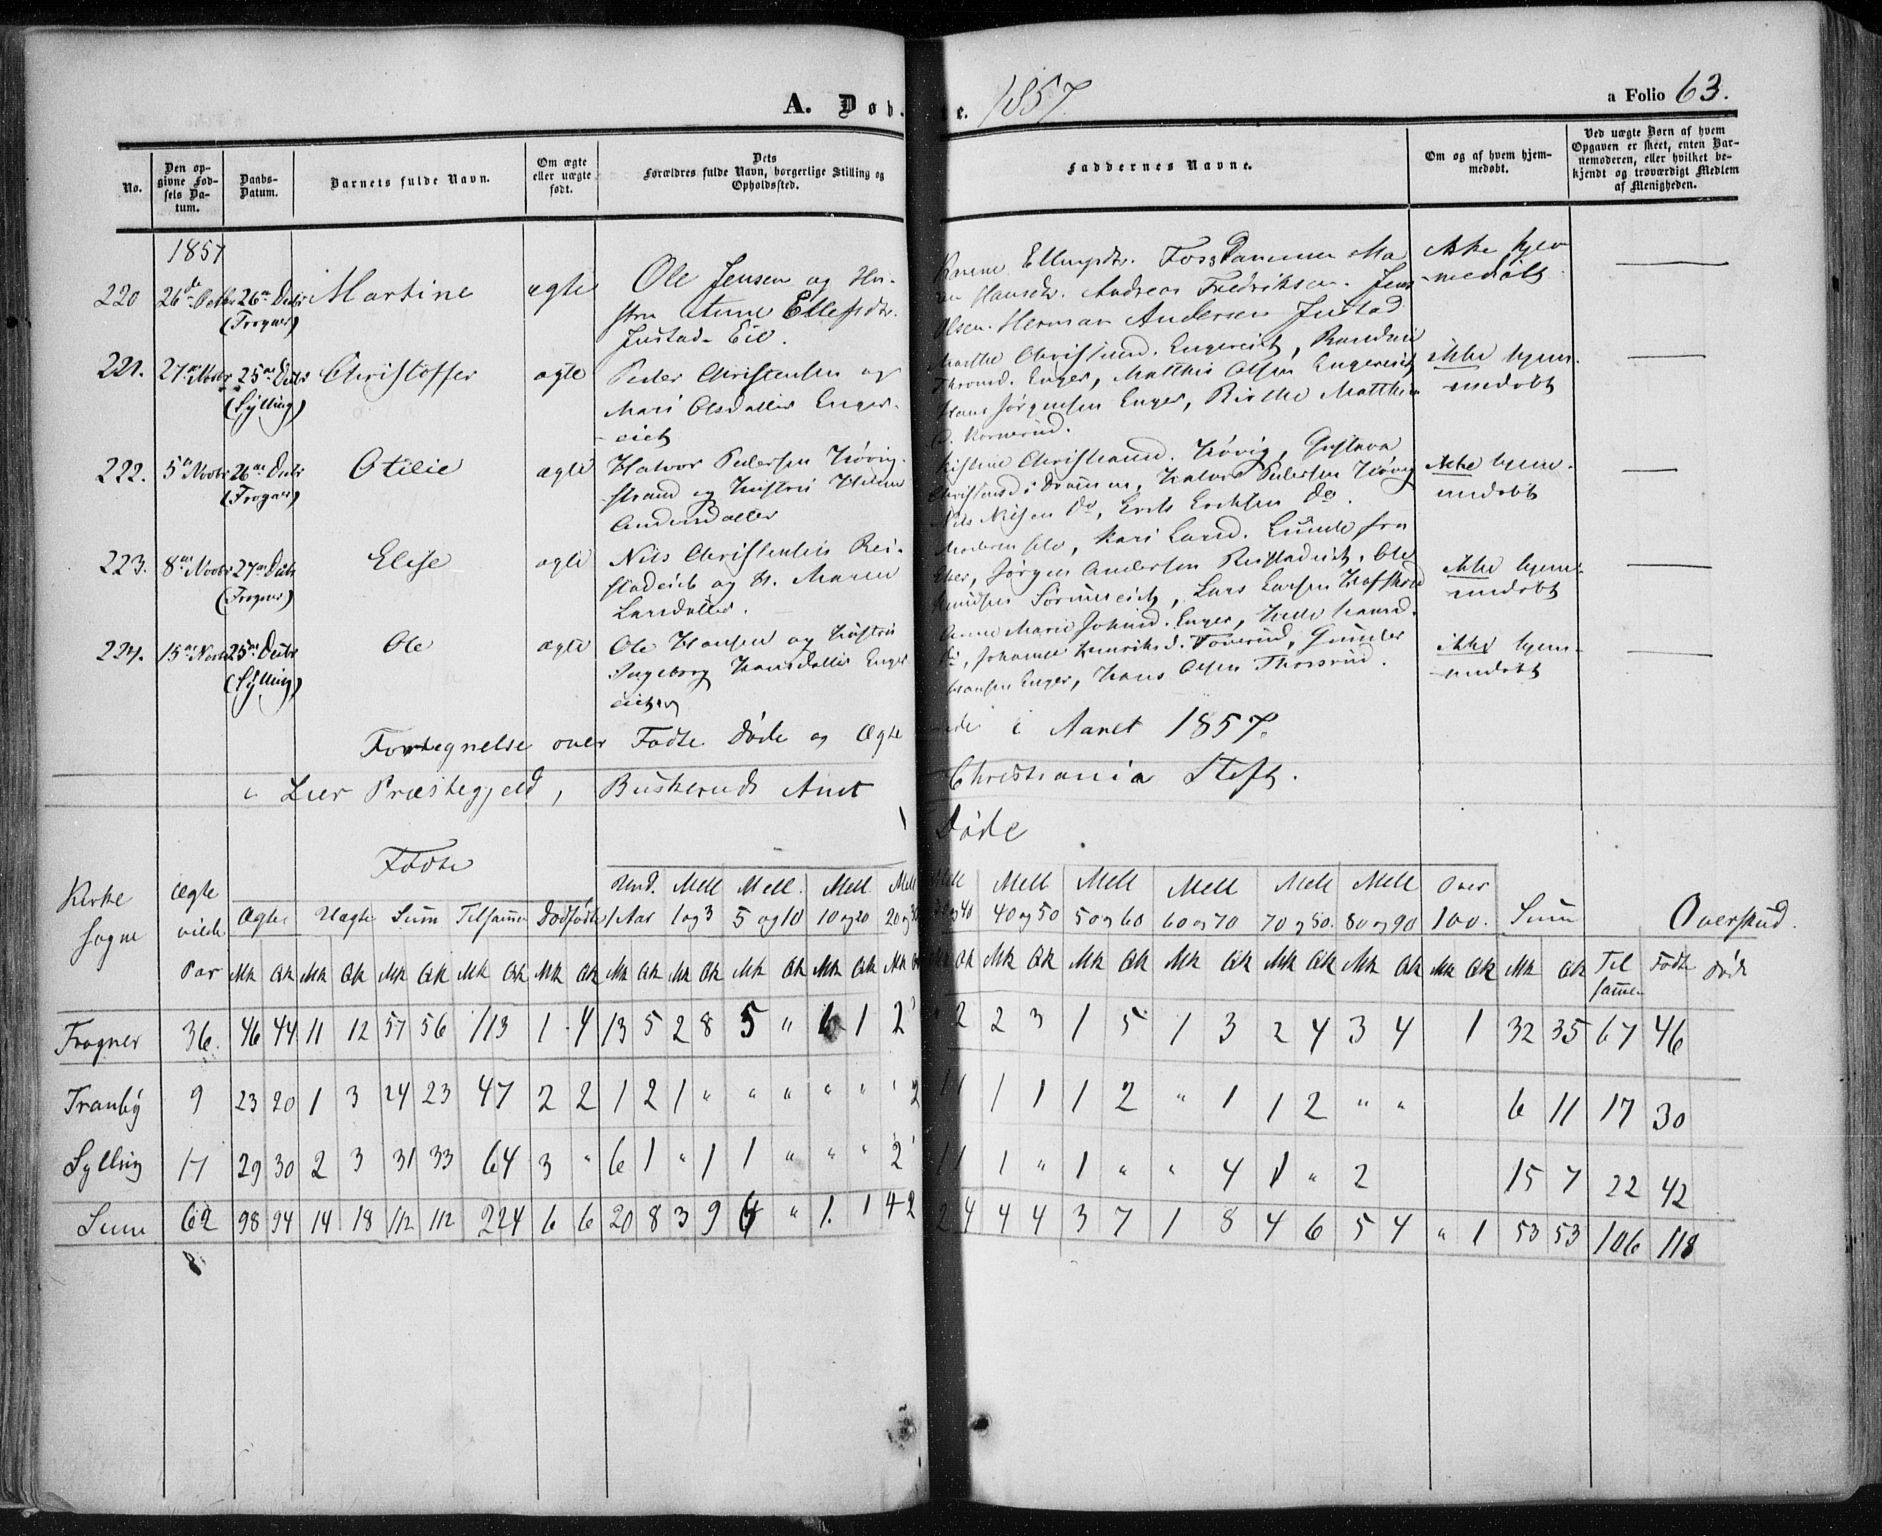 A. Døb. te. 1857.
a Folio 63.
No.
Den opgivne Fødsels Datum.
Daabs-Datum.
Barnets fulde Navn.
Om ægte eller uægte født.
Dets Forældres fulde Navn, borgerlige Stilling og Opholdssted.
Faddernes Navne.
Om og af hvem hjemmedøbt.
Ved uægte Børn af hvem Opgaven er skeet, enten Barnemoderen, eller hvilket bekjendt og troværdigt Medlem af Menigheden.
1857
220 26de Octbr 26de Decbr (Frogner) Martine ægte Ole Jensen og Hu-
stru Anne Ellefsdtr.
Justad-Eie.
Hansdtr. Andreas Fredriksen. Jens
Olsen. Herman Andersen Justad
ikke hjem
medøbt
221. 27de Novbr 25de Decbr (Sylling) Christoffer ægte Peder Christensen og
Mari Olsdatter Enger-
eiet
Marthe Christensd. Engereiet, Randine
Thronsd. Enger, Matthis Olsen Engereiet
Hans Jørgensen Enger, Birthe Matthis
d. Kornerud.
ikke hjem-
medøbt
222. 5te Novbr 26de Decbr (Frogner) Otilie ægte Halvor Pedersen Gjøvig
strand og Hustru
Andersdatter
Christiansd. Gustava
Christensd i Drammen, Halvor Pedersen
Nils Nilsen Do, Erik Eriksen Do.
ikke hjem-
medøbt
223. 8de Novbr 27de Decbr (Frogner) Elise ægte Nils Christensen Rei-
stadeie og H. Maren
Larsdatter.
Moderen selv, Kari Larsd. Lunde fra
Eker, Jørgen Andersen Reistadeiet, Ole
Knudsen Sørumeiet, Lars Larsen
ikke hjem-
medøbt
224. 15de Novbr 25de Decbr (Sylling) Ole ægte Ole Hansen og Hustru
Ingeborg Hansdatter Enger
eiet
Anne Marie Johnsd. Enger, Helle Hansd.
Do, Johanne Henriksd. Toverud, Gunder
Hansen Enger, Hans Olsen Thorsrud.
ikke hjem-
medøbt
Fortegnelse over Fødte Døde og Ægte ede i Aaret 1857.
i Lier Præstegjeld, Buskeruds Amt Christiania Stift.
Fødte Døde
Kirke sogne Ægte viede Par Ægte Uægte Sum Tilsamm Dødfødte Und. 1 Aar Mell 1 og 3 Mell. 5 og 10 Mell. 10 og 20 Mell 20 og 30 Mell 40 Mell 40 og 50 Mell 50 og 60 Mell 60 og 70 Mell 70 og 80. Mell 80 og 90 Over 100. Sum Overskud.
Mk Qk Mk Qk Mk Qk Mk Qk Mk Qk Mk Qk Mk Qk Mk Qk Mk Qk Mk Qk Mk Qk Mk Qk Mk Qk Mk Qk Mk Qk Mk Qk Mk Qk Til sammen Fødte Døde
Frogner 36. 46 44 11 12 57 56 113 1 4 13 5 2 8 5 " 6 1 2 2 2 3 1 5 1 3 2 4 3 4 1 32 35 67 46
Tranby 9 23 20 1 3 24 23 47 2 2 1 2 1 " " " " " 2 1 1 1 1 1 2 " 1 1 2 " " 6 11 17 30
Sylling 17 29 30 2 3 31 33 64 3 " 6 1 " 1 1 " " " 2 1 1 1 " 1 " " 4 1 " 2 15 7 22 42
Sum 62 98 94 14 18 112 112 224 6 6 20 8 3 9 6 " 1. 1 4 2 2 4 4 4 3 7 1 8 4 6 5 4 " 1 53 53 106 118